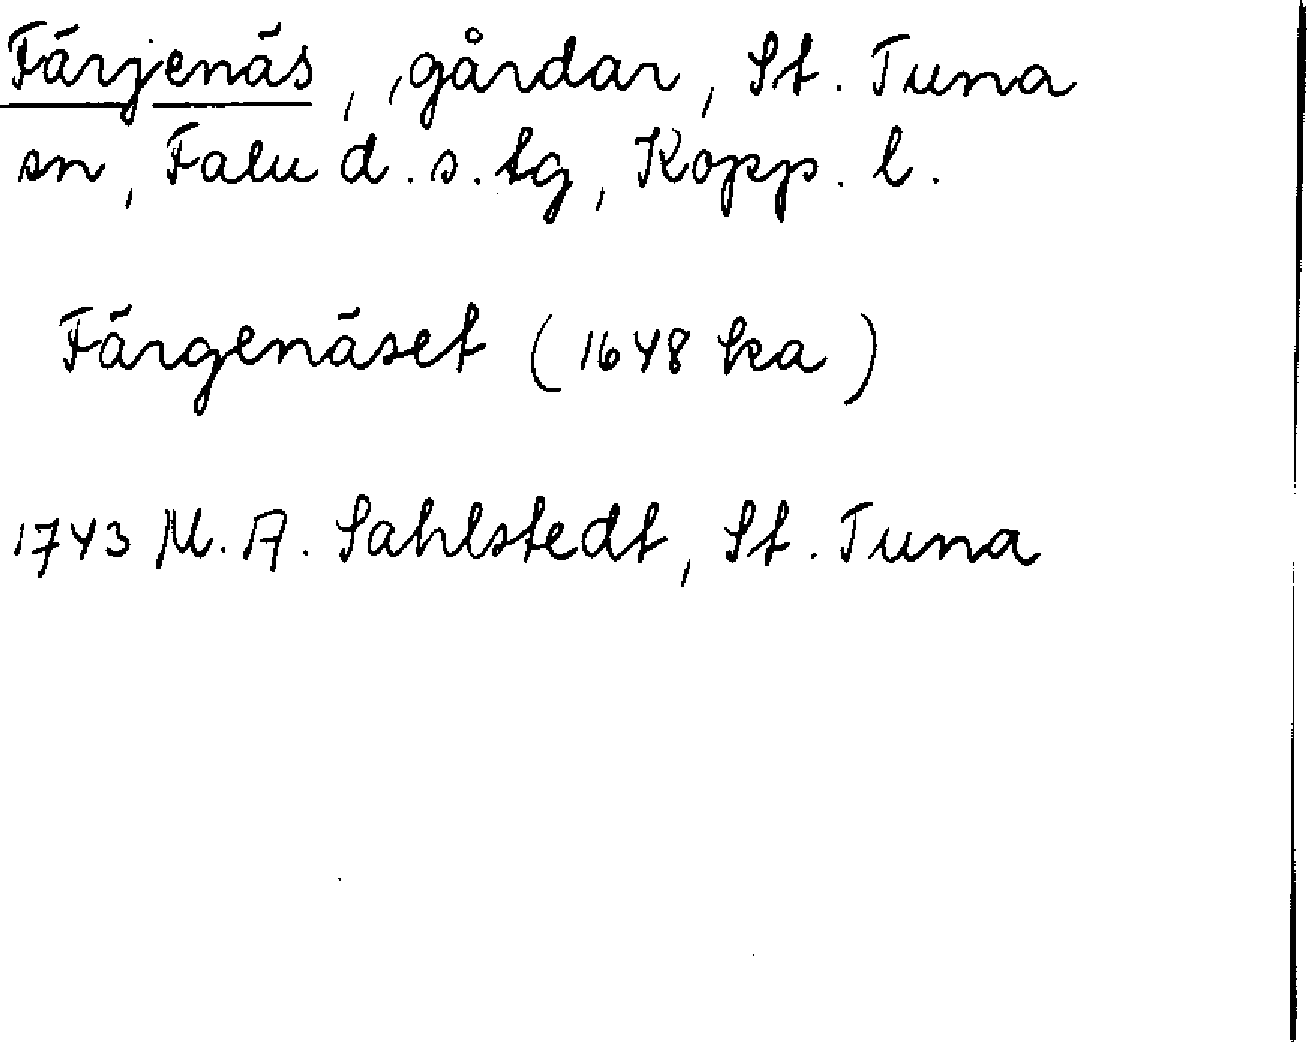 Färjenäs, gårdar, St. Tuna
sn, Falu d.s. tg, Kopp. l.
Färgenäset (1648 ka)
1743 M. A. Sahlstedt, St. Tuna